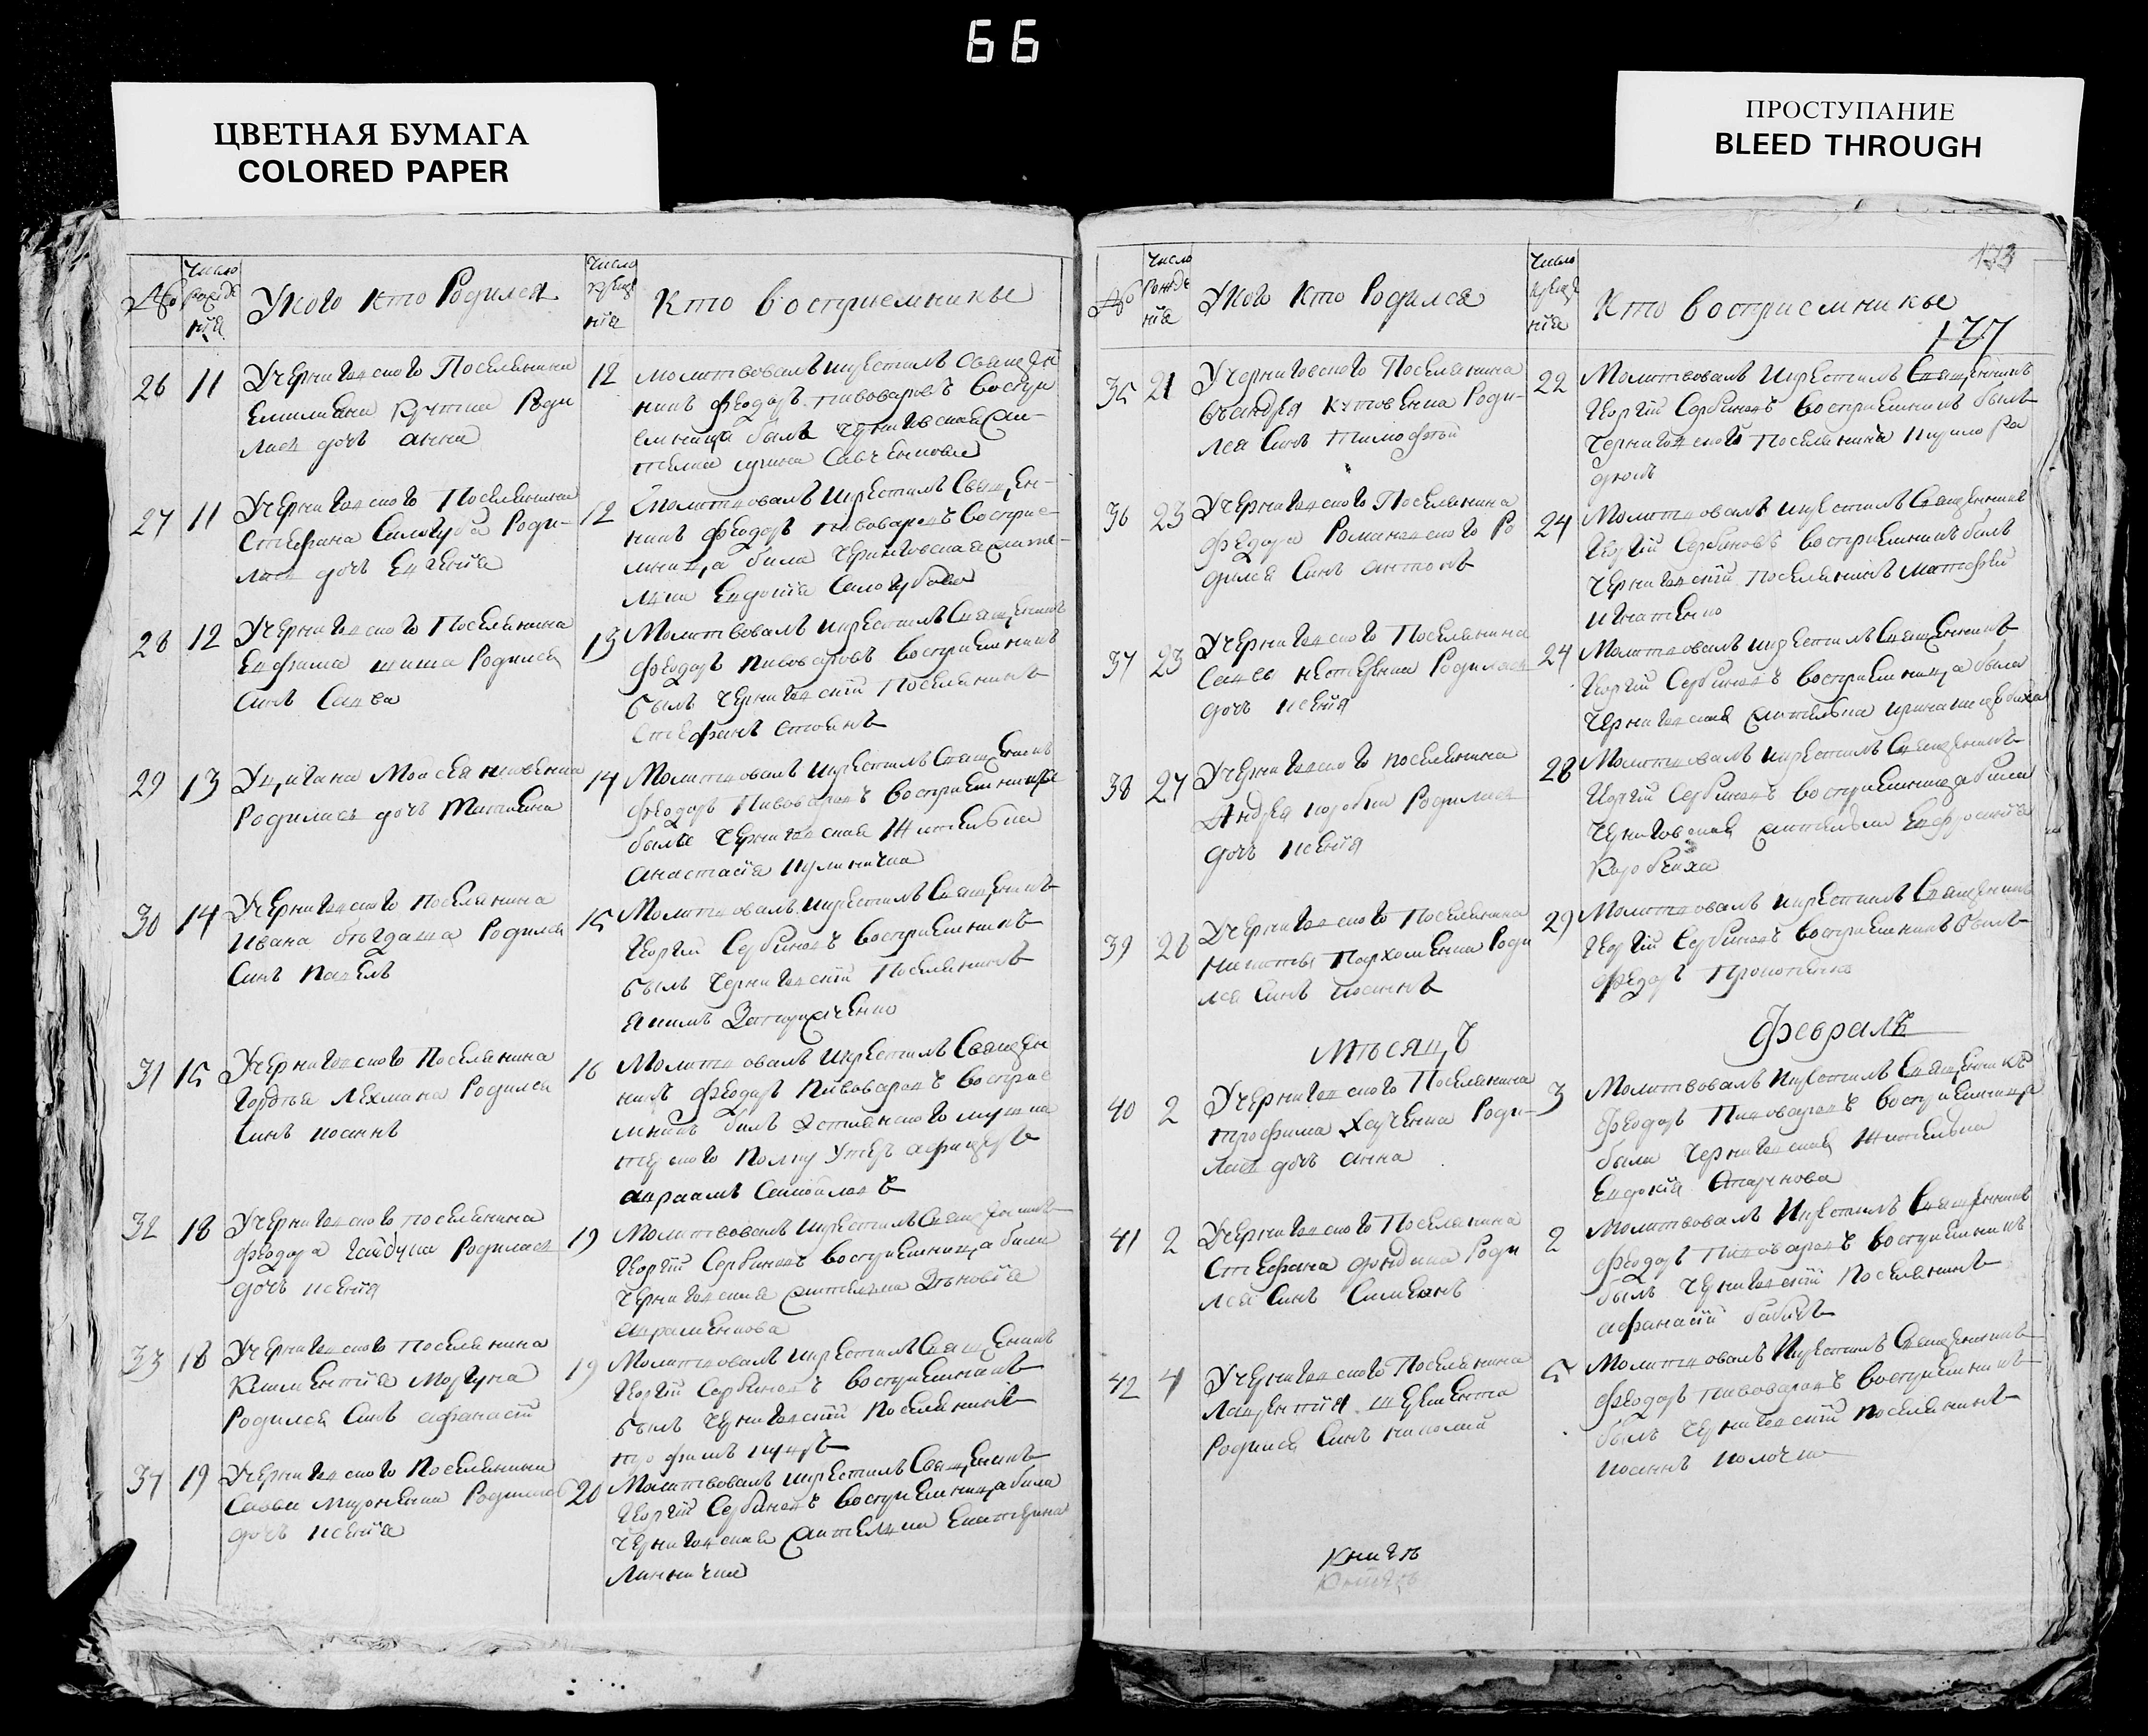 66
ЦВЕТНАЯ БУМАГА
COLORED PAPER
ПРОСТУПАНИЕ
BLEED THROUGH
№
Число рожде нія
Укого кто Родился
Число креще нія
Кто восприемники
26 11
Учерниговского Поселянина
Емилияна Родилась дочь анна
12
молитвовалъ икрестилъ священникъ феодоръ пивоваровъ воспри
емница была черниговская жи-
27 11
Учерниговского Поселянина
Стефана Салогуба Роди-
лась дочь Евгенія
12
Молитвовалъ икрестилъ Священ-
никъ феодоръ пивоваровъ восприе-
мница била черниговская жите-
лка Евдокія Салогубова
28 12
Учерниговского Поселянина
Евфима шиша Родился
Синъ Савва
13
Молитвовалъ икрестилъ Священникъ
феодоръ пивоваровъ восприемникъ
былъ черниговскій Поселянинъ
Стефанъ
29 13
Уцигана Моисея
Родилась дочь Татияна
14
Молитвовалъ икрестилъ Священникъ
феодоръ Пивоваровъ восприемница
была черниговская Жителька
Анастасія
30 14
Учерниговского поселянина
Ивана Родился
Синъ Павелъ
15
Молитвовалъ икрестилъ Священникъ
Георгій Сербиновъ восприемникъ
былъ черниговскій Поселянинъ
Якимъ
31 15
Учерниговского Поселянина
Гордѣя Лехмана Родился
Синъ иоаннъ
16
Молитвовалъ икрестилъ Священ
никъ феодоръ Пивоваровъ восприе
мникъ билъ
полку
авраамъ
32 18
Учерниговского поселянина
феодора гайдука Родилась
дочь ксенія
19
Молитвовалъ икрестилъ Священникъ
Георгій Сербиновъ восприемница била
черниговская жителка Зѣновія
авраменкова
33 18
Учерниговского поселянина
Климентія Моргуна
Родился Синъ афанасій
19
Молитвовалъ икрестилъ Священникъ
Георгій Сербиновъ восприемникъ
былъ черниговскій поселянинъ
трофимъ
34 19
Учерниговского Поселянина
Саввы Мироненка Родилась
дочь ксенія
20
Молитвовалъ икрестилъ Священникъ
Георгій Сербиновъ восприемница била
черниговская жителка Екатерина
173
177
№
Число рожде нія
Укого кто Родился
Число креще нія
Кто восприемники
35 21
Учерниговского Поселянина
Роди-
лся Синъ тимофей
22
Молитвовалъ икрестилъ Священникъ
Георгій Сербиновъ восприемникъ былъ
черниговского поселянина
36 23
Учерниговского Поселянина
феодора Романовского Ро
дился Синъ антонъ
24
Молитвовалъ икрестилъ Священникъ
Георгій Сербиновъ восприемникъ былъ
черниговскій поселянинъ матфей
игнатенко
37 23
Учерниговского Поселянина
Саввы нестеренка Родилась
дочь ксенія
24
Молитвовалъ икрестилъ Священникъ
Георгій Сербиновъ восприемница была
черниговская жителька ирина
38 27
Учерниговского поселянина
Андрея коробки Родилась
дочь ксенія
28
Молитвовалъ икрестилъ Священникъ
Георгій Сербиновъ восприемница била
черниговская жителька Евфросинія
39 28
Учерниговского Поселянина
Никиты Пархоменка Роди
лся Синъ иоаннъ
29
Молитвовалъ икрестилъ Священникъ
Георгій Сербиновъ восприемникъ былъ
феодоръ Прокопенко
Мѣсяцъ
Февраль
40 2
Учерниговского Поселянина
трофима Харченка Роди-
лась дочь анна
3
Молитвовалъ икрестилъ Священникъ
феодоръ Пивоваровъ восприемница
была черниговская Жителька
Евдокія
41 2
Учерниговского Поселянина
Стефана Роди
лся Синъ Симеонъ
2
Молитвовалъ икрестилъ Священникъ
феодоръ Пивоваровъ восприемникъ
былъ черниговскій Поселянинъ
афанасій
42 4
Учерниговского Поселянина
Лаврентія шеремета
Родился Синъ николай
5
Молитвовалъ икрестилъ Священникъ
феодоръ пивоваровъ восприемникъ
былъ черниговскій поселянинъ
иоаннъ